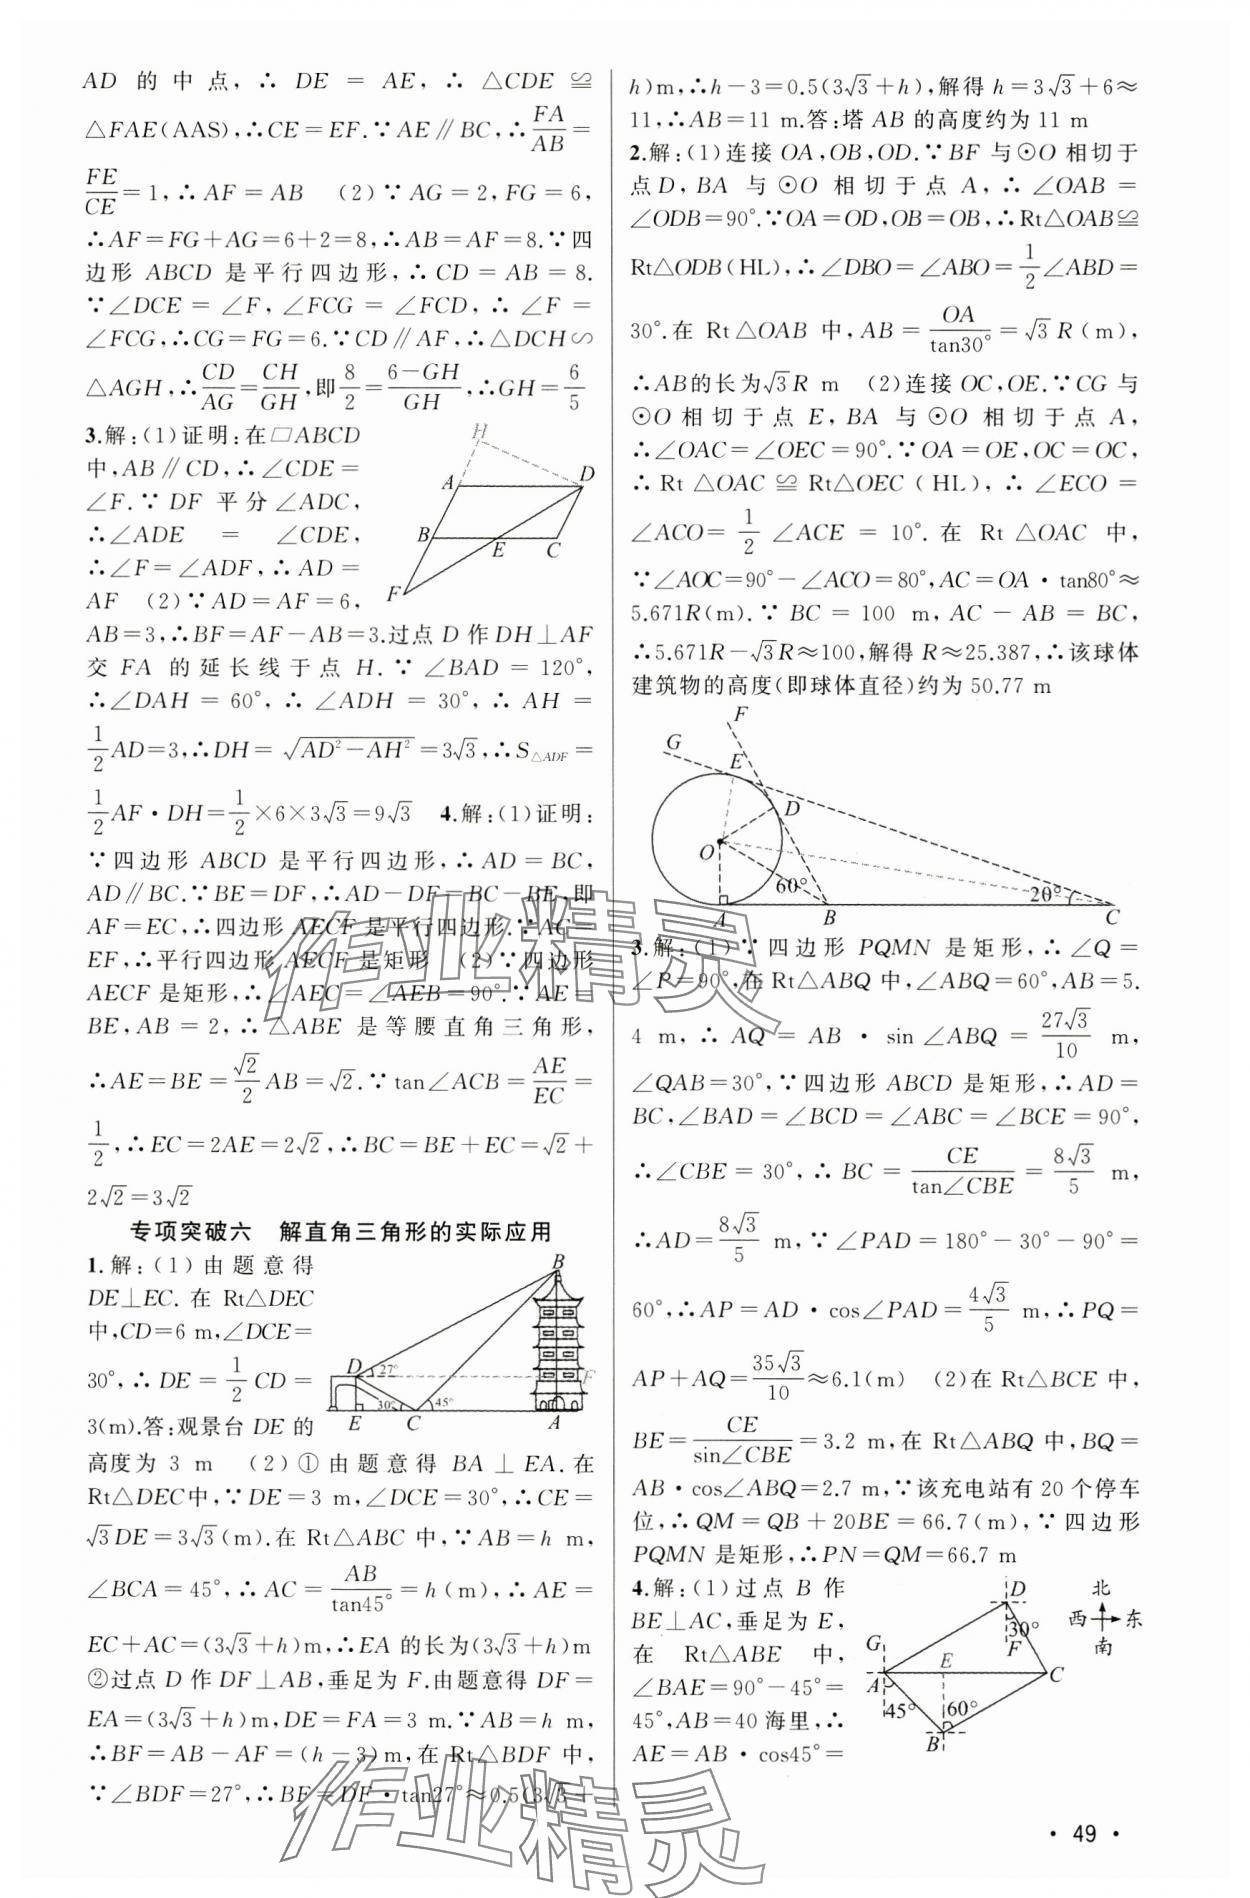 AD 的中点,∴ DE = AE,∴ △CDE ≌
△FAE(AAS),∴CE=EF.∵AE∥BC,∴FA/AB=
FE/CE=1,∴ AF = AB (2)∵ AG=2,FG=6,
∴AF=FG+AG=6+2=8,∴AB=AF=8.∵四
边形 ABCD 是平行四边形,∴CD=AB=8.
∵∠DCE = ∠F,∠FCG = ∠FCD,∴ ∠F =
∠FCG,∴CG=FG=6.∵CD∥AF,∴△DCH∽
△AGH,∴CD/AG=CH/GH,即8/2=(6-GH)/GH,∴GH=6/5
3.解:(1)证明:在□ABCD
中,AB∥CD,∴∠CDE=
∠F.∵ DF 平分∠ADC,
∴∠ADE = ∠CDE,
∴∠F=∠ADF,∴AD=
AF (2)∵AD=AF=6,
AB=3,∴BF=AF-AB=3.过点 D 作 DH⊥AF
交 FA 的延长线于点 H.∵∠BAD=120°,
∴∠DAH = 60°,∴ ∠ADH = 30°,∴ AH =
1/2AD=3,∴DH=√(AD²-AH²)=3√3,∴S△ADF=
1/2AF·DH=1/2×6×3√3=9√3 4.解:(1)证明:
∵四边形 ABCD 是平行四边形,∴AD=BC,
AD∥BC.∵BE=DF,∴AD-DF=BC-BE,即
AF=EC,∴四边形 AECF 是平行四边形.∵AC=
EF,∴平行四边形 AECF 是矩形 (2)∵四边形
AECF 是矩形,∴∠AEC=∠AEB=90°.∵AE=
BE,AB = 2,∴△ABE 是等腰直角三角形,
∴AE=BE=√2/2 AB=√2.∵tan∠ACB=AE/EC=
1/2,∴EC=2AE=2√2,∴BC=BE+EC=√2+
2√2=3√2
专项突破六 解直角三角形的实际应用
1.解:(1)由题意得
DE⊥EC.在 Rt△DEC
中,CD=6 m,∠DCE=
30°,∴DE=1/2CD=
3(m).答:观景台 DE 的
高度为 3 m (2)①由题意得 BA⊥EA.在
Rt△DEC中,∵DE=3 m,∠DCE=30°,∴CE=
√3DE=3√3(m).在 Rt△ABC 中,∵AB=h m,
∠BCA=45°,∴AC=AB/tan45°=h(m),∴AE=
EC+AC=(3√3+h)m,∴EA 的长为(3√3+h)m
②过点 D 作 DF⊥AB,垂足为 F.由题意得 DF=
EA=(3√3+h)m,DE=FA=3 m.∵AB=h m,
∴BF=AB-AF=(h-3)m,在 Rt△BDF 中,
∵∠BDF=27°,∴BF=DF·tan27°≈0.5(3√3+
h)m,∴h-3=0.5(3√3+h),解得 h=3√3+6≈
11,∴AB=11 m.答:塔 AB 的高度约为 11 m
2.解:(1)连接 OA,OB,OD.∵BF 与⊙O 相切于
点D,BA 与⊙O 相切于点 A,∴∠OAB=
∠ODB=90°.∵OA=OD,OB=OB,∴Rt△OAB≌
Rt△ODB(HL),∴∠DBO=∠ABO=1/2∠ABD=
30°.在 Rt△OAB 中,AB=OA/tan30°=√3R(m),
∴AB的长为√3R m (2)连接 OC,OE.∵CG 与
⊙O 相切于点 E,BA 与⊙O 相切于点 A,
∴∠OAC=∠OEC=90°.∵OA=OE,OC=OC,
∴Rt△OAC≌Rt△OEC(HL),∴∠ECO=
∠ACO=1/2∠ACE=10°.在 Rt△OAC 中,
∵∠AOC=90°-∠ACO=80°,AC=OA·tan80°≈
5.671R(m).∵BC=100 m,AC-AB=BC,
∴5.671R-√3R≈100,解得 R≈25.387,∴该球体
建筑物的高度(即球体直径)约为 50.77 m
3.解:(1)∵四边形 PQMN 是矩形,∴∠Q=
∠P=90°,在 Rt△ABQ 中,∠ABQ=60°,AB=5.
4 m,∴AQ=AB·sin∠ABQ=27√3/10 m,
∠QAB=30°,∵四边形 ABCD 是矩形,∴AD=
BC,∠BAD=∠BCD=∠ABC=∠BCE=90°,
∴∠CBE=30°,∴BC=CE/tan∠CBE=8√3/5 m,
∴AD=8√3/5 m,∵∠PAD=180°-30°-90°=
60°,∴AP=AD·cos∠PAD=4√3/5 m,∴PQ=
AP+AQ=35√3/10≈6.1(m) (2)在 Rt△BCE 中,
BE=CE/sin∠CBE=3.2 m,在 Rt△ABQ 中,BQ=
AB·cos∠ABQ=2.7 m,∵该充电站有 20 个停车
位,∴QM=QB+20BE=66.7(m),∵四边形
PQMN 是矩形,∴PN=QM=66.7 m
4.解:(1)过点 B 作
BE⊥AC,垂足为 E,
在 Rt△ABE 中,
∠BAE=90°-45°=
45°,AB=40 海里,∴
AE=AB·cos45°=
H
A
D
B
E
C
F
B
D
27°
F
30°
45°
E
C
A
F
G
E
D
O
60°
20°
A
B
C
D
北
西
东
南
30°
F
G
E
A
C
45°
60°
B
作业精灵
作业精灵
· 49 ·